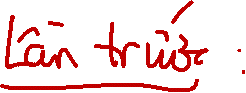 Lần trước :